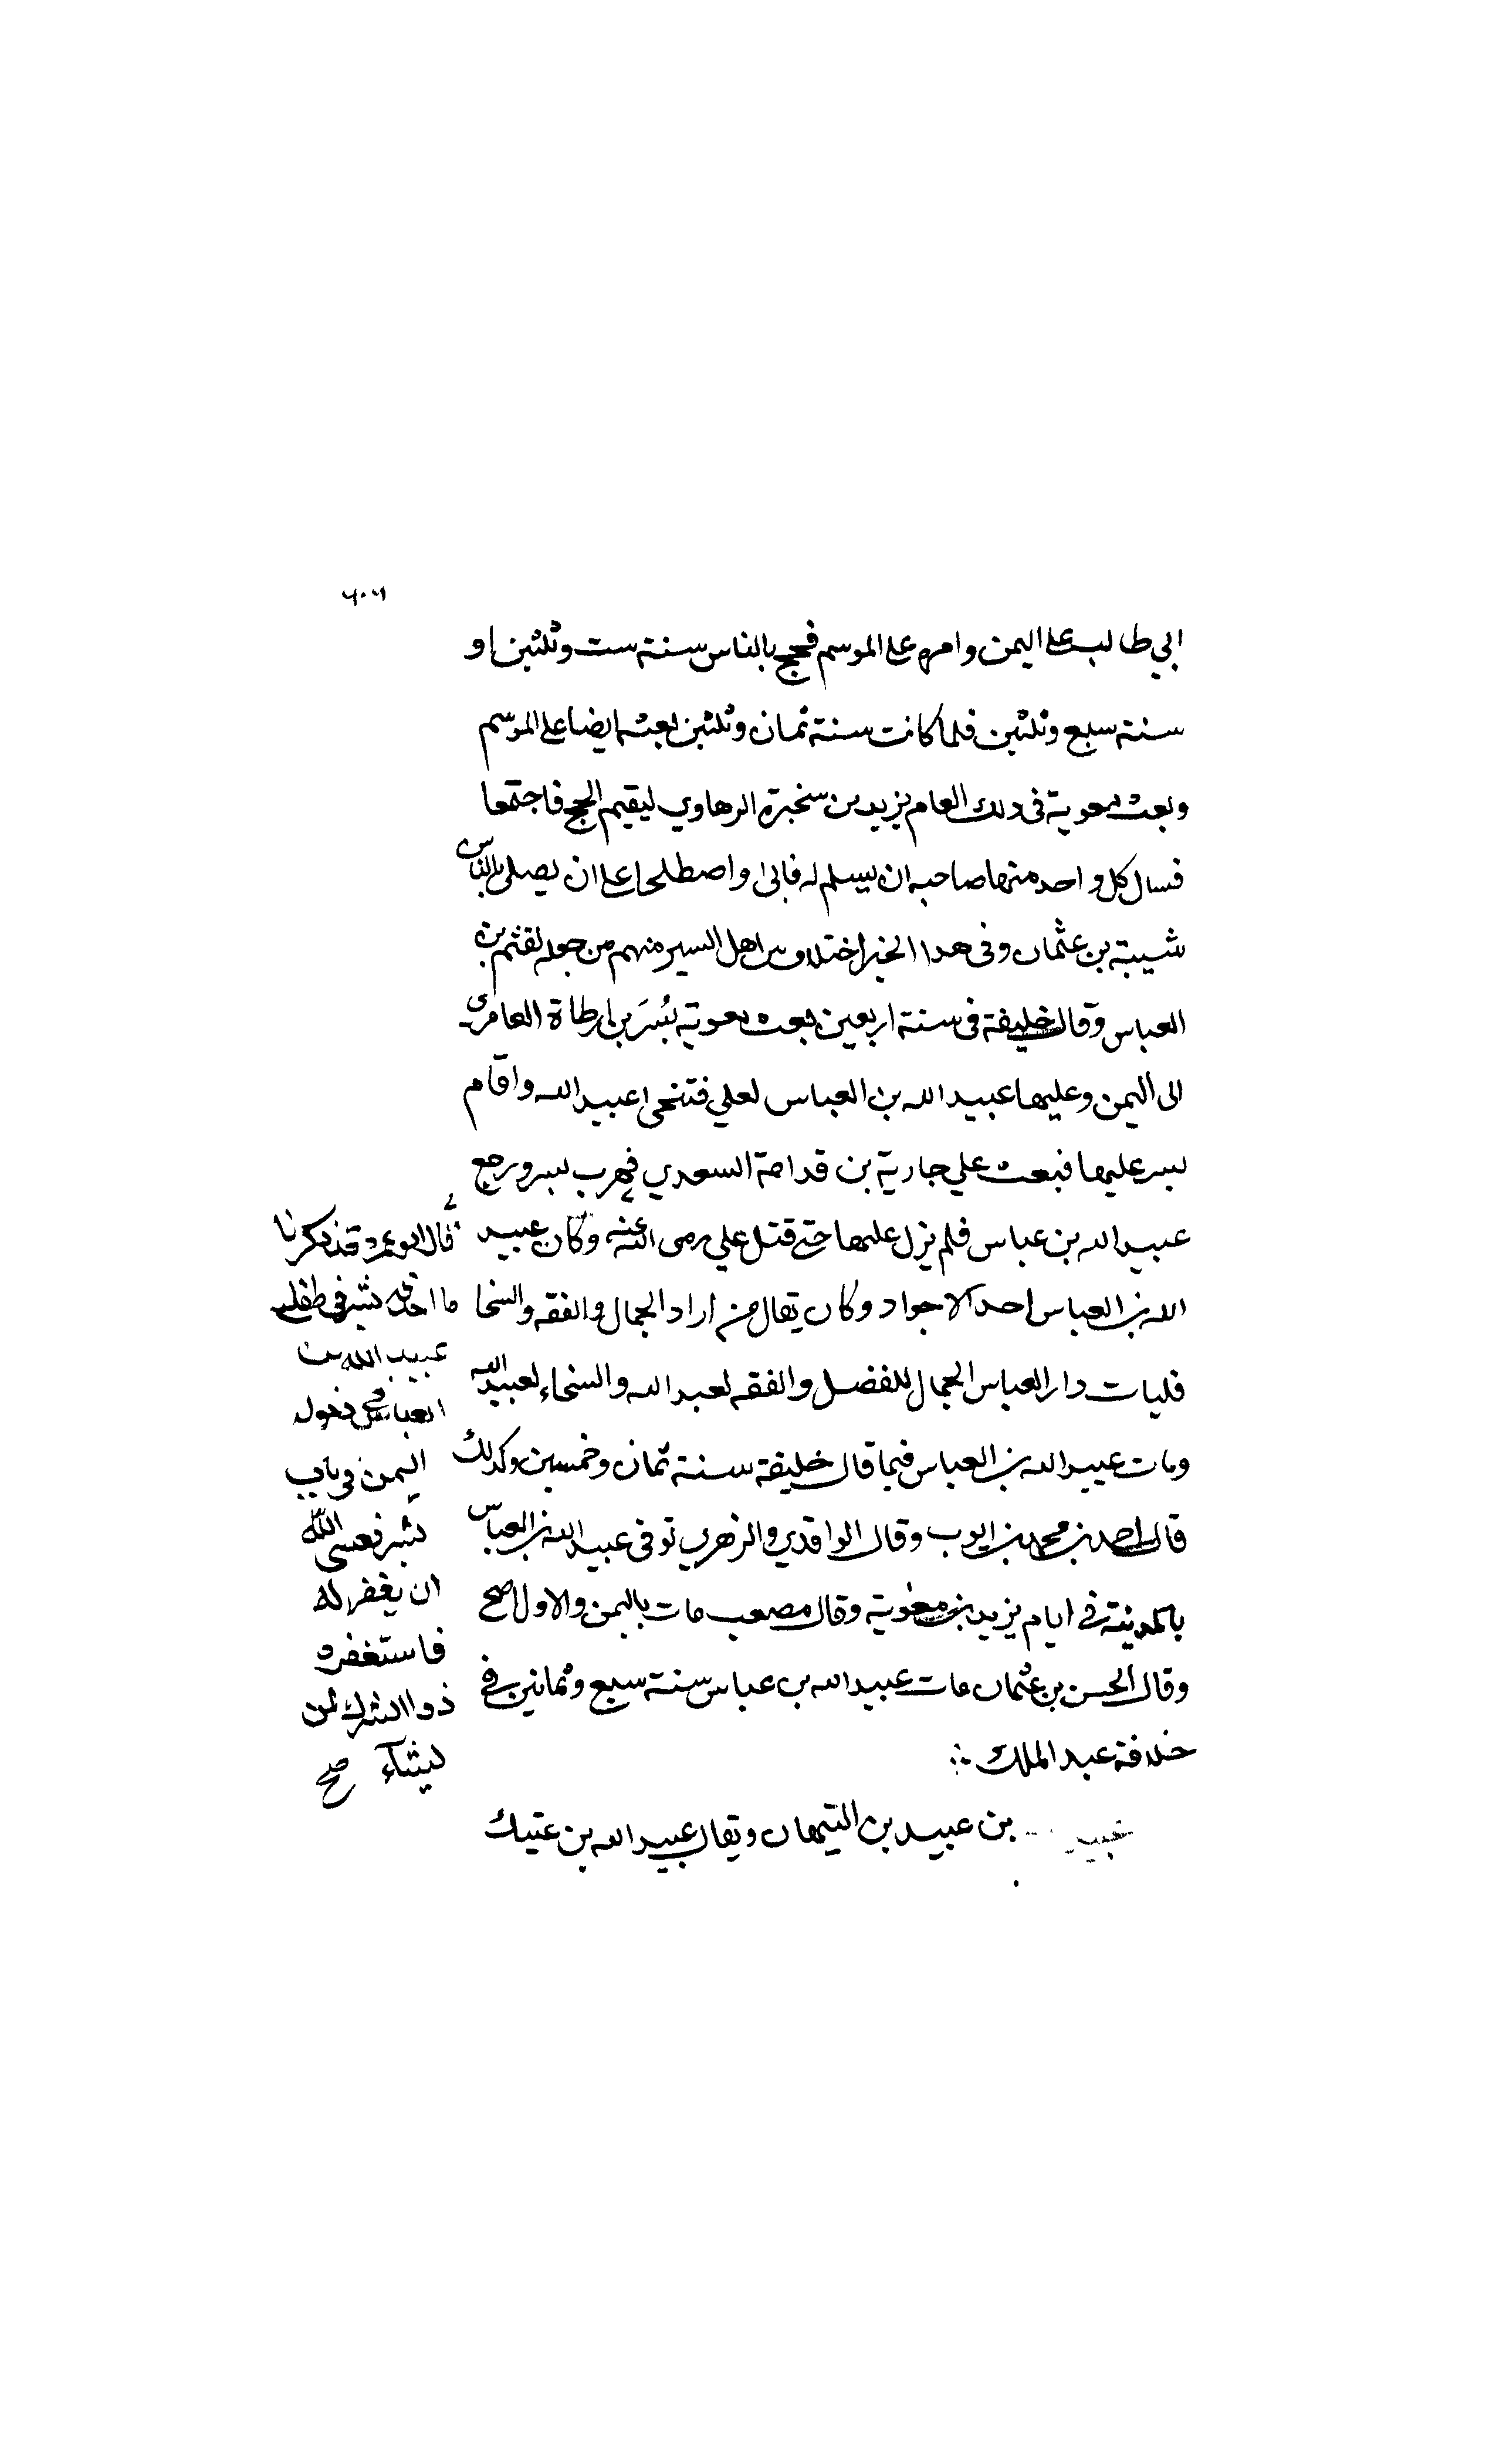 ابي طالب على اليمن وامره على الموسم فحج بالناس سنة ست وثلثين او
سنة سبع وثلثين فلما كانت سنة ثمان وثلثين بعثه ايضا على الموسم
وبعث معوية فى ذلك العام يزيد بن سخبرة الرهاوي ليقيم الحج فاجتمعا
فسال كل واحد منهما صاحبه ان يسلم له فابى واصطلحا على ان يصلى بالناس
شيبة بن عثمان وفى هدا الخبر اختلاف بين اهل السير منهم من جعله لقثم بن
العباس وقال خليفة فى سنة اربعين بعث معوية بُسْرَ بن ارطاة العامرى
الى اليمن وعليها عبيد الله بن العباس لعلي فتنحى عبيد الله واقام
بسر عليها فبعث علي جارية بن قدامة السعدي فهرب بسر ورجع
عبيد الله بن عباس فلم يزل عليها حتى قتل علي رضى الله عنه وكان عبيد
الله بن العباس احد الاجواد وكان يقال من اراد الجمال والفقه والسخا
فليات دار العباس الجمال للفضل والفقه لعبد الله والسخاء لعبيد الله
ومات عبيد الله بن العباس فيما قال خليفة سنة ثمان وخمسين وكدلك
قال احمد بن محمد بن ايوب وقال الواقدي والزهري توفى عبيد الله بن العباس
بالمدينة فى ايام يزيد بن معوية وقال مصعب مات باليمن والاول اصح
وقال الحسن بن عثمان مات عبيد الله بن عباس سنة سبع وثمانين فى
خلافة عبد الملك
عبيد بن عبيد بن التيهان ويقال عبيد الله بن عتيك
قال ابو عمر وقد ذكرنا
ما احدثه بسر فى طفلى
عبيد الله بن
العباس فى دخوله
اليمن فى باب
بسر فعسى الله
ان يغفر له
فاستغفره
الشرك لمن
يشآء صح